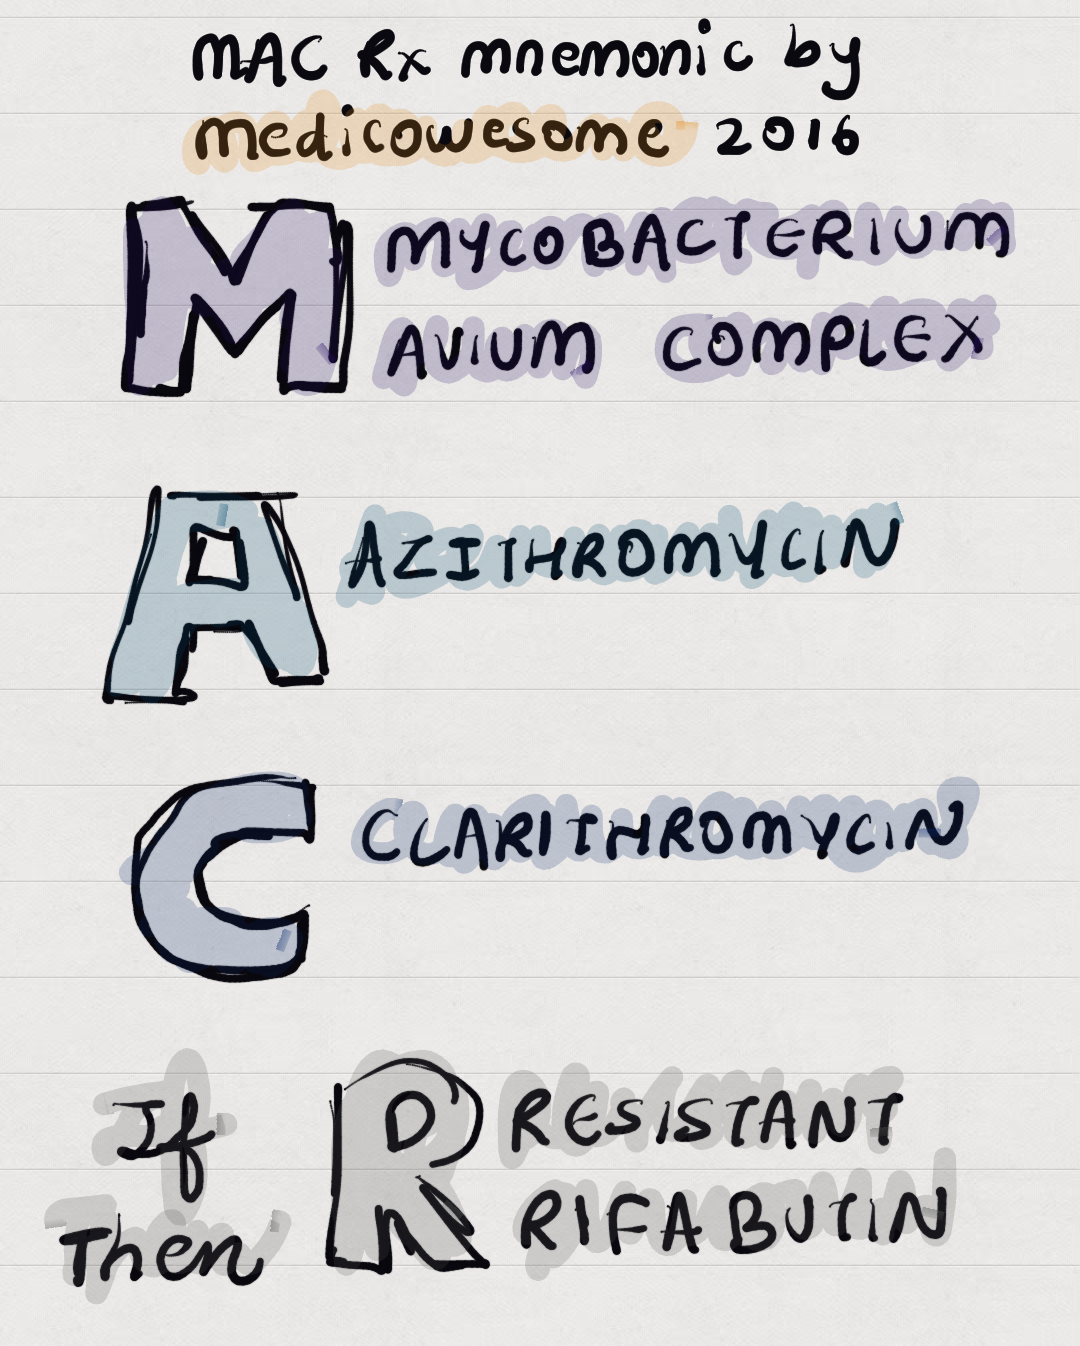 MAC Rx mnemonic by
medicowesome 2016
M MYCOBACTERIUM
AVIUM COMPLEX
A AZITHROMYCIN
C CLARITHROMYCIN
If R RESISTANT
Then RIFABUTIN